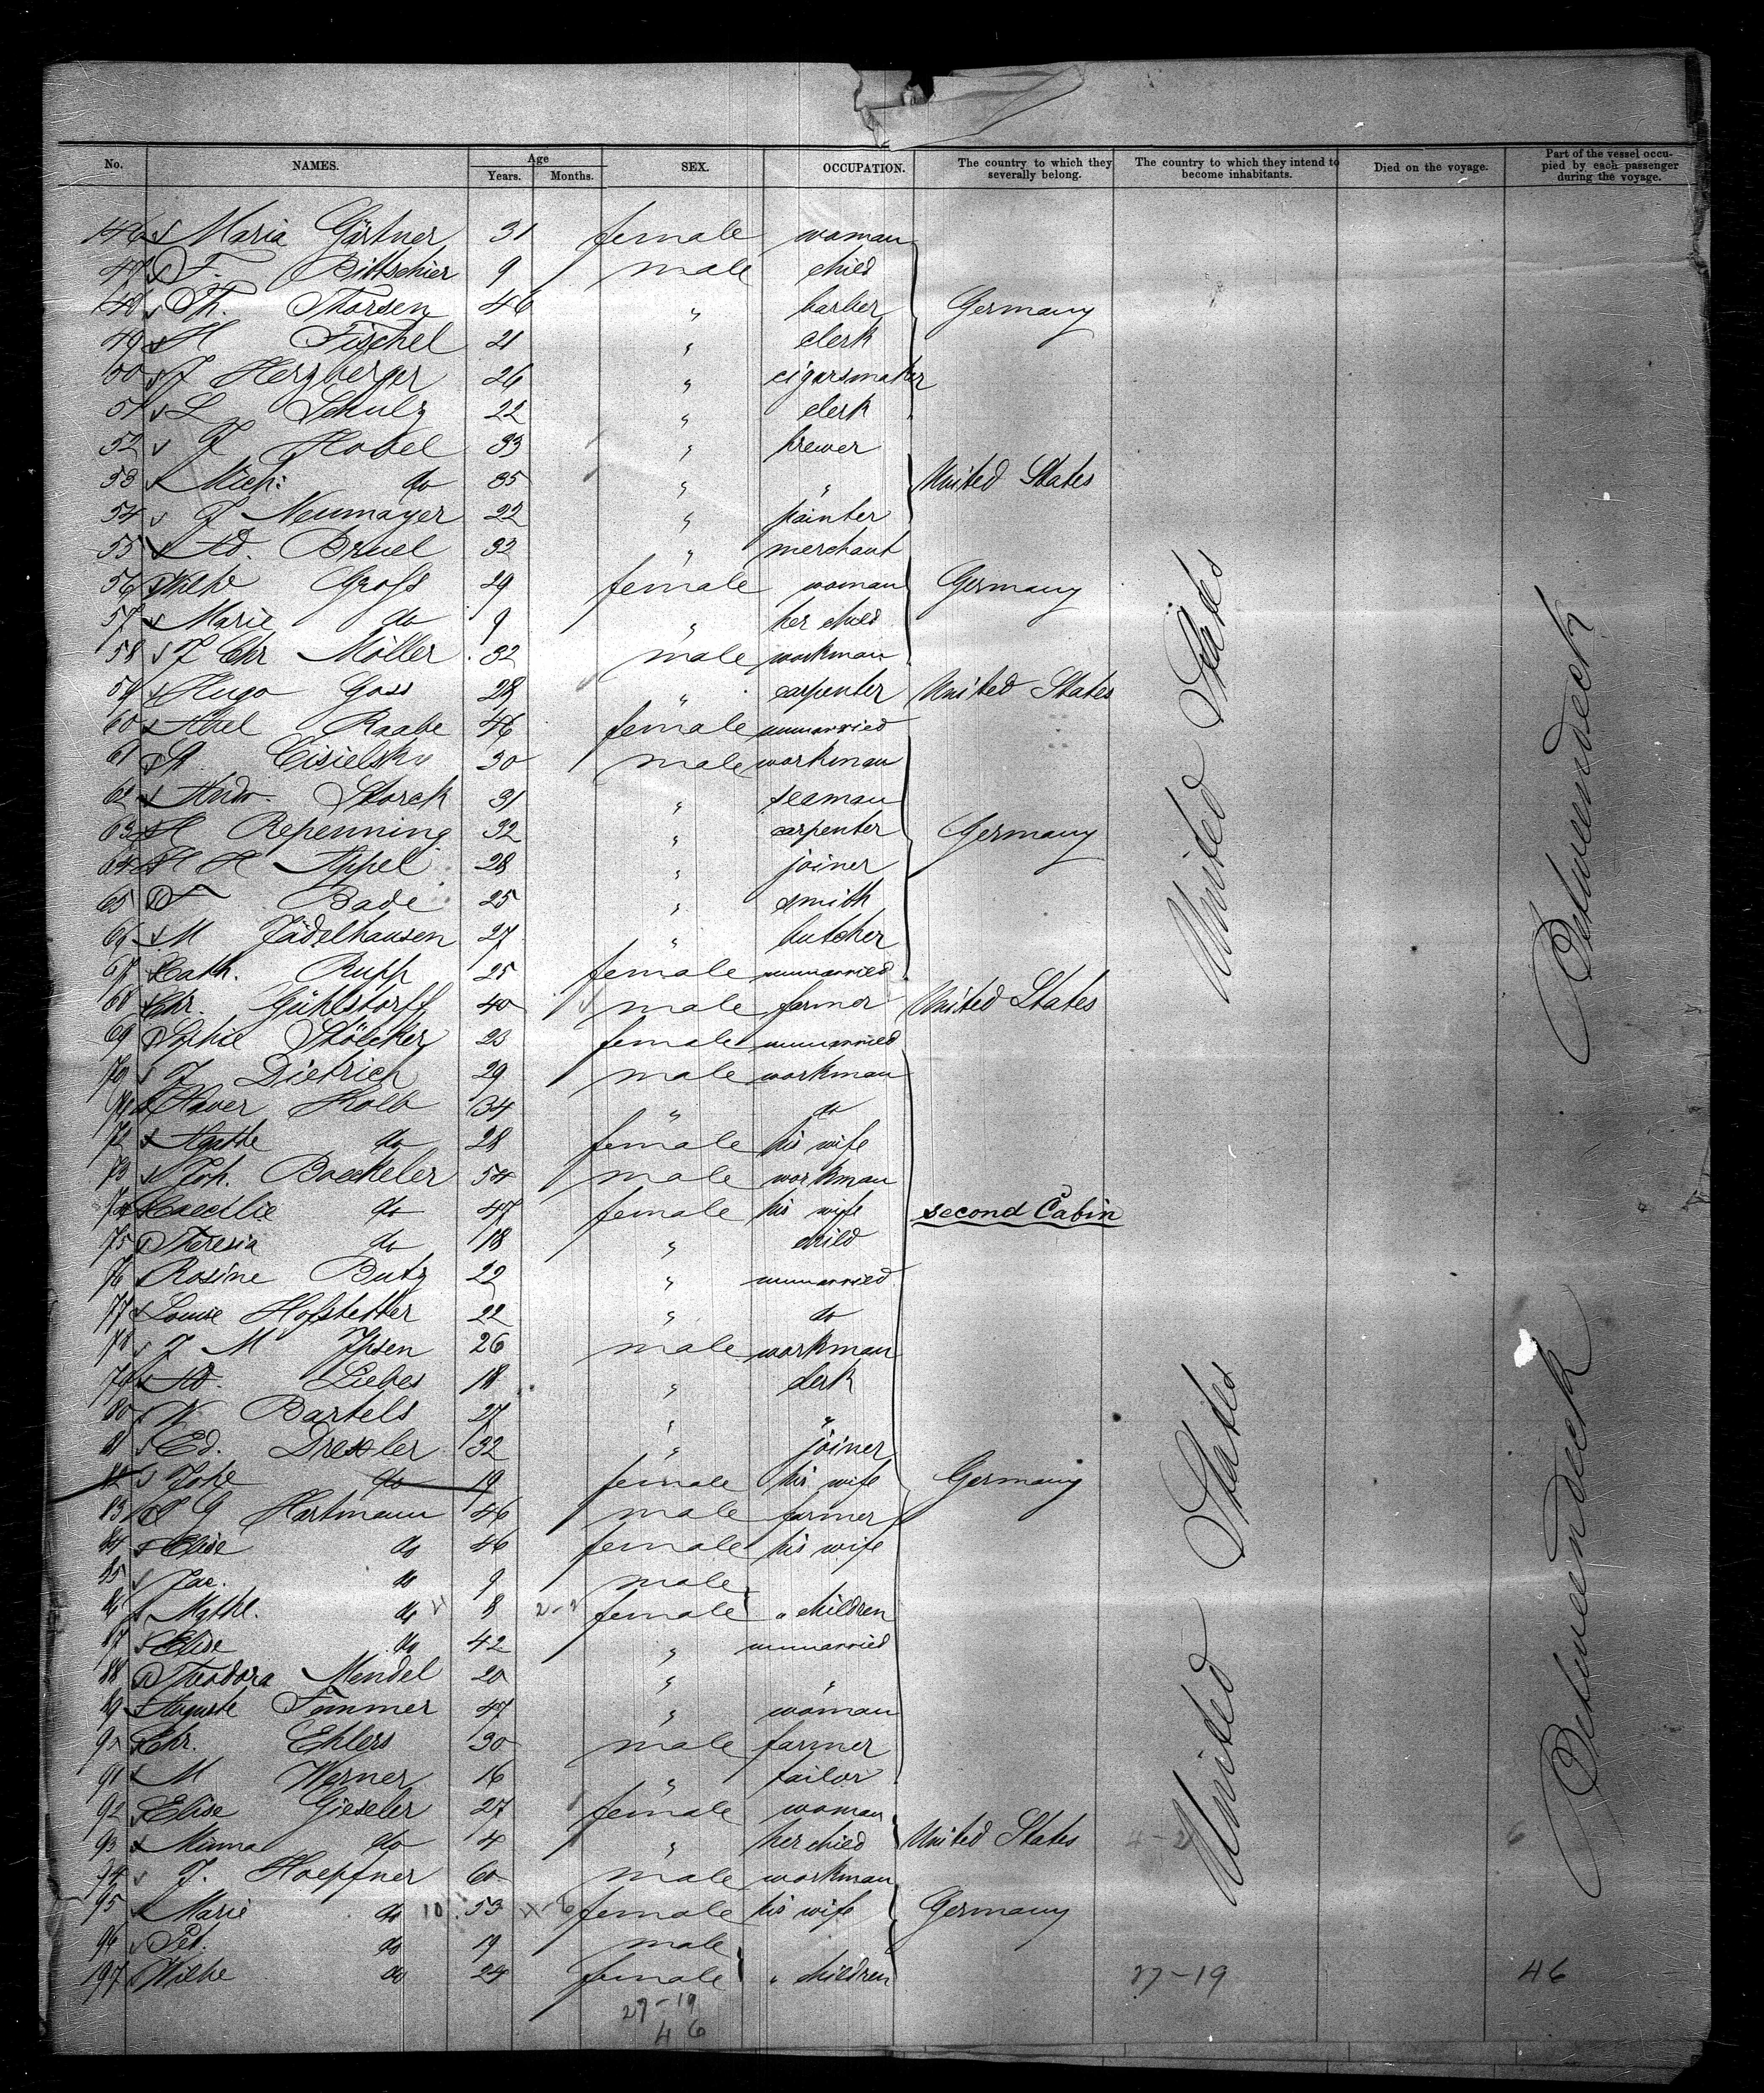 No. NAMES. Age Years. Months. SEX. OCCUPATION. The country to which they severally belong. The country to which they intend to become inhabitants. Died on the voyage. Part of the vessel occupied by each passenger during the voyage.
146 Maria Gärtner 31 female woman
47 F. Bittschier 9 male child
48 Th. Thorsen 46 " barber Germany
49 H Fischel 21 " clerk
50 J Herzberger 26 " cigarsmaker
51 L Schulz 22 " clerk
52 J Hobel 33 " brewer
53 Mich: do 35 " " United States
54 J Neumayer 22 " painter
55 Ad. Bruel 32 " merchant
56 Wilhe Gross 29 female woman Germany
57 Marie do 9 " her child
58 J Chr Möller 32 male workman
59 Hugo Goss 28 " carpenter United States
60 Abel Raabe 46 female unmarried
61 A. Cisielsky 30 male workman
62 Andr. Storch 31 " seaman
63 H Repenning 32 " carpenter Germany
64 H H Appel 28 " joiner
65 F Bade 25 " smith
66 M Jädelhausen 27 " butcher
67 Cath. Rupp 25 female unmarried
68 Chr. Gühlstorff 40 male farmer United States
69 Sophie Stölcker 23 female unmarried
70 J Dietrich 29 male workman
71 Xaver Kolb 34 " do
72 Agathe do 28 female his wife
73 Joh. Boekeler 54 male workman
74 Caecilie do 47 female his wife second Cabin
75 Theresia do 18 " child
76 Rosine Butz 22 " unmarried
77 Louise Hofstetter 22 " do
78 J M Ipsen 26 male workman
79 Ad. Liebes 18 " clerk
80 W Bartels 27 " "
81 Ed. Dressler 32 " joiner
82 Johe do 19 female his wife Germany
83 G Hartmann 46 male farmer
84 Elise do 46 female his wife
85 Jac. do 9 male
86 Mathl. do 8 female " children
87 Elise do 42 " unmarried
88 Theodora Mendel 20 " "
89 Auguste Timmer 47 " woman
90 Chr. Ehlers 30 male farmer
91 M Werner 16 " tailor
92 Elise Gieseler 27 female woman
93 Minna do 4 " her child United States 4-2 6
94 J. Hoepfner 60 male workman
95 Marie do 10 53 female his wife Germany
96 Pet. do 19 male
197 Wilhe do 24 female " children 27-19 46
27-19
46
United States
United States
Betweendeck
Betweendeck